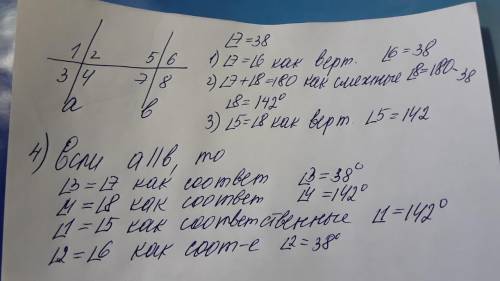 1 2 5 6
3 4 7 8
a в
∠7=38
1) ∠7=∠6 как верт. ∠6=38
2) ∠7+∠8=180 как смежные ∠8=180-38
∠8=142°
3) ∠5=∠8 как верт. ∠5=142
4) Если a||в, то
∠3=∠7 как соответ ∠3=38°
∠4=∠8 как соответ ∠4=142°
∠1=∠5 как соответственные ∠1=142°
∠2=∠6 как соот-е ∠2=38°